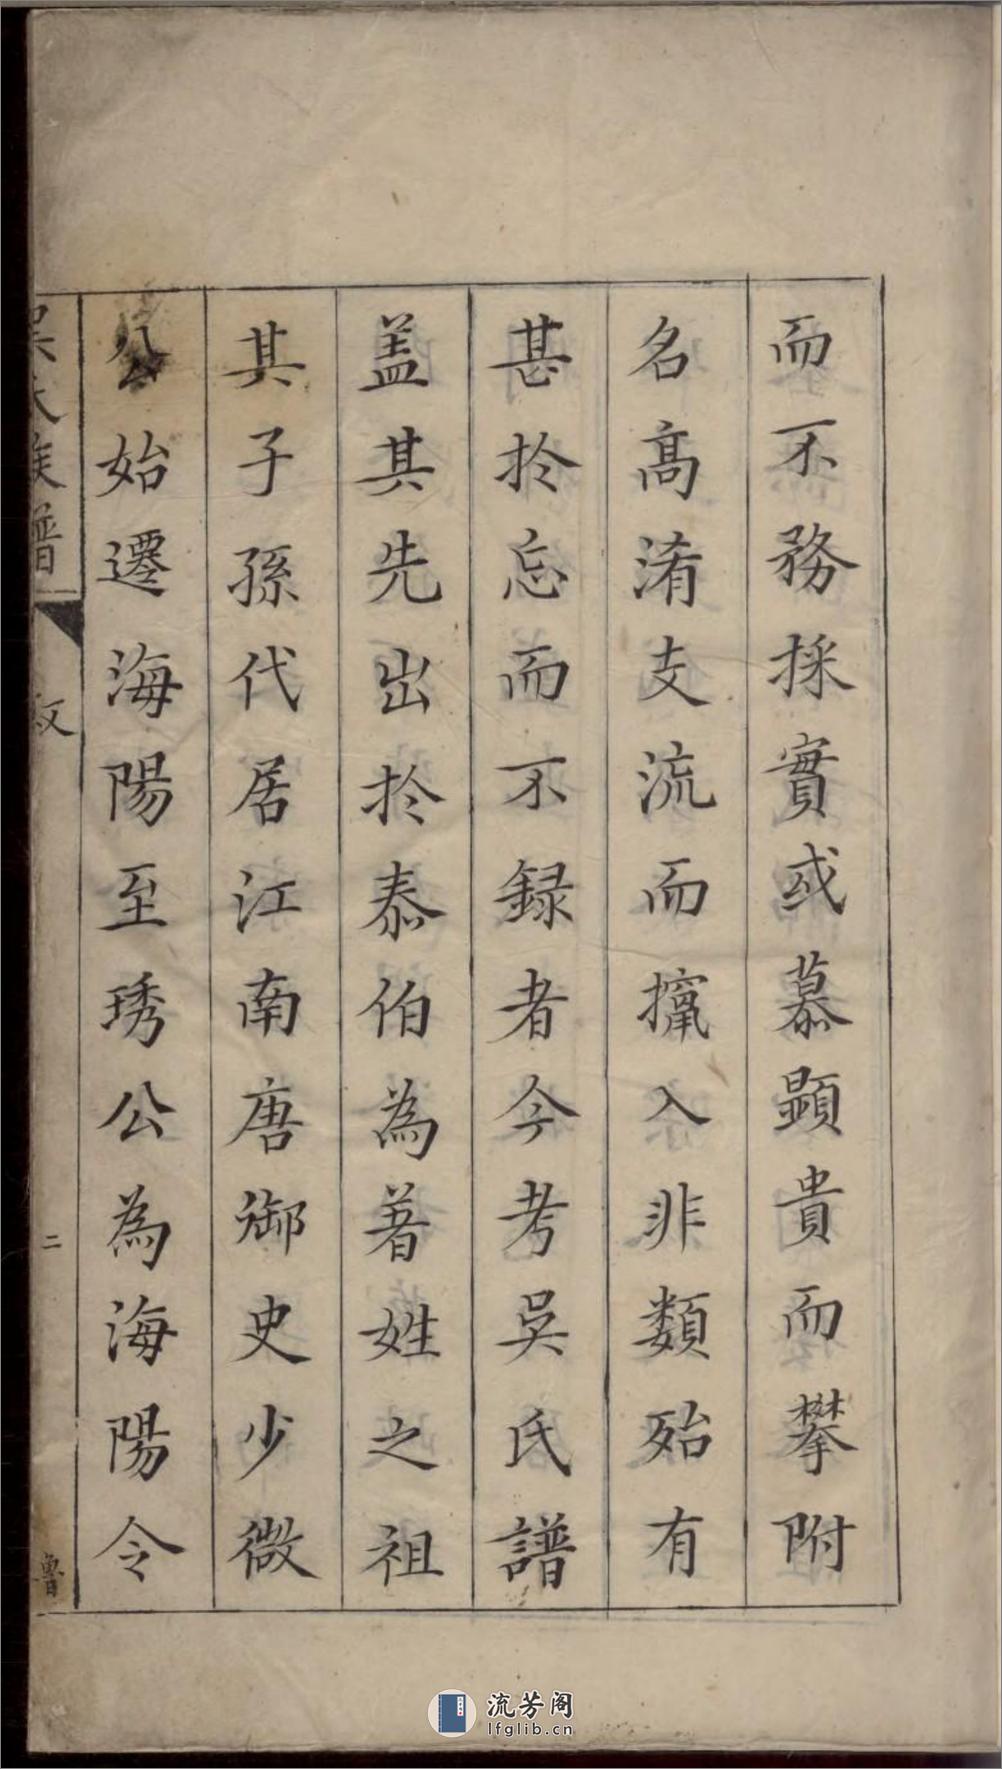 而不務採實或慕顯貴而攀附
名高淆支流而攛入非類殆有
甚於忘而不録者今考吳氏譜
盖其先出於泰伯為著姓之祖
其子孫代居江南唐御史少微
公始遷海陽至琇公為海陽令
吳氏族譜
叙
二
魯
流芳阁
lfglib.cn